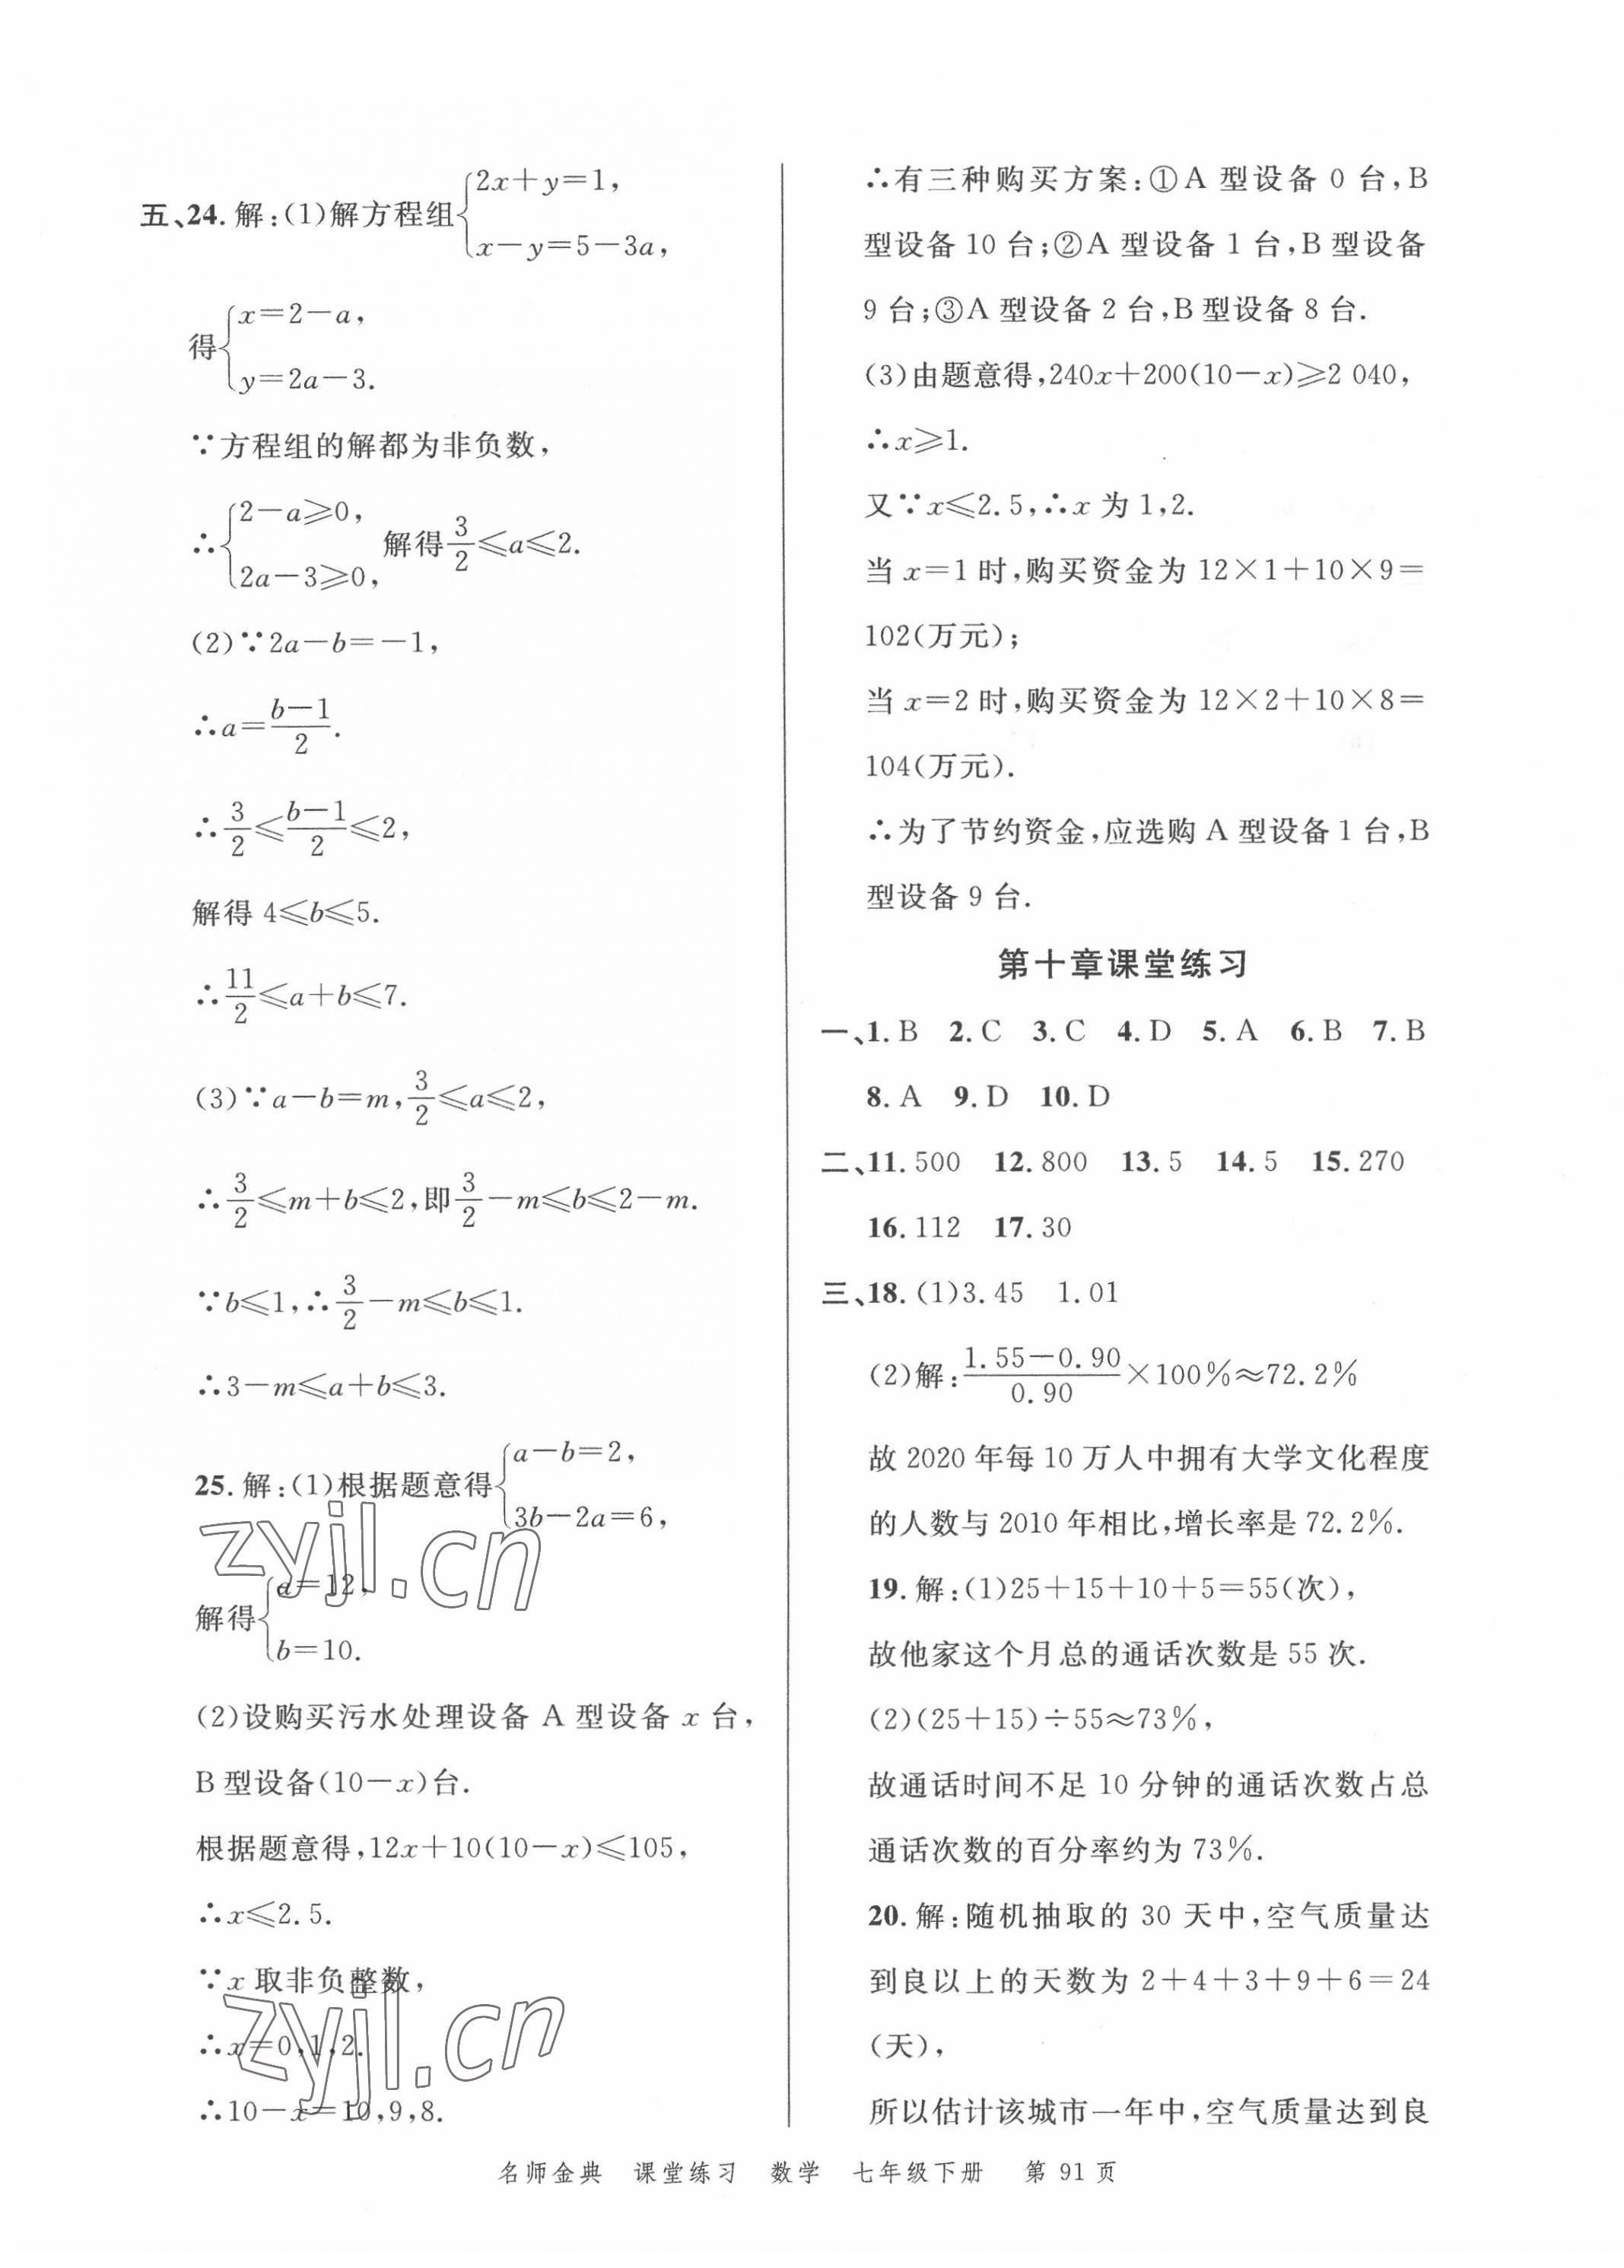 五、24. 解:(1)解方程组{2x+y=1,
x-y=5-3a,
得{x=2-a,
y=2a-3.
∵方程组的解都为非负数,
∴{2-a≥0,
2a-3≥0, 解得3/2≤a≤2.
(2)∵2a-b=-1,
∴a=(b-1)/2.
∴3/2≤(b-1)/2≤2,
解得 4≤b≤5.
∴11/2≤a+b≤7.
(3)∵a-b=m,3/2≤a≤2,
∴3/2≤m+b≤2,即3/2-m≤b≤2-m.
∵b≤1,∴3/2-m≤b≤1.
∴3-m≤a+b≤3.
25. 解:(1)根据题意得{a-b=2,
3b-2a=6,
解得{a=12,
b=10.
(2)设购买污水处理设备 A 型设备 x 台,
B 型设备(10-x)台.
根据题意得,12x+10(10-x)≤105,
∴x≤2.5.
∵x 取非负整数,
∴x=0,1,2.
∴10-x=10,9,8.
zyjl.cn
zyjl.cn
∴有三种购买方案:①A 型设备 0 台,B
型设备 10 台;②A 型设备 1 台,B 型设备
9 台;③A 型设备 2 台,B 型设备 8 台.
(3)由题意得,240x+200(10-x)≥2 040,
∴x≥1.
又∵x≤2.5,∴x 为 1,2.
当 x=1 时,购买资金为 12×1+10×9=
102(万元);
当 x=2 时,购买资金为 12×2+10×8=
104(万元).
∴为了节约资金,应选购 A 型设备 1 台,B
型设备 9 台.
第十章课堂练习
一、1. B 2. C 3. C 4. D 5. A 6. B 7. B
8. A 9. D 10. D
二、11. 500 12. 800 13. 5 14. 5 15. 270
16. 112 17. 30
三、18. (1)3.45 1.01
(2)解:(1.55-0.90)/0.90×100%≈72.2%
故 2020 年每 10 万人中拥有大学文化程度
的人数与 2010 年相比,增长率是 72.2%.
19. 解:(1)25+15+10+5=55(次),
故他家这个月总的通话次数是 55 次.
(2)(25+15)÷55≈73%,
故通话时间不足 10 分钟的通话次数占总
通话次数的百分率约为 73%.
20. 解:随机抽取的 30 天中,空气质量达
到良以上的天数为 2+4+3+9+6=24
(天),
所以估计该城市一年中,空气质量达到良
名师金典 课堂练习 数学 七年级下册 第 91 页